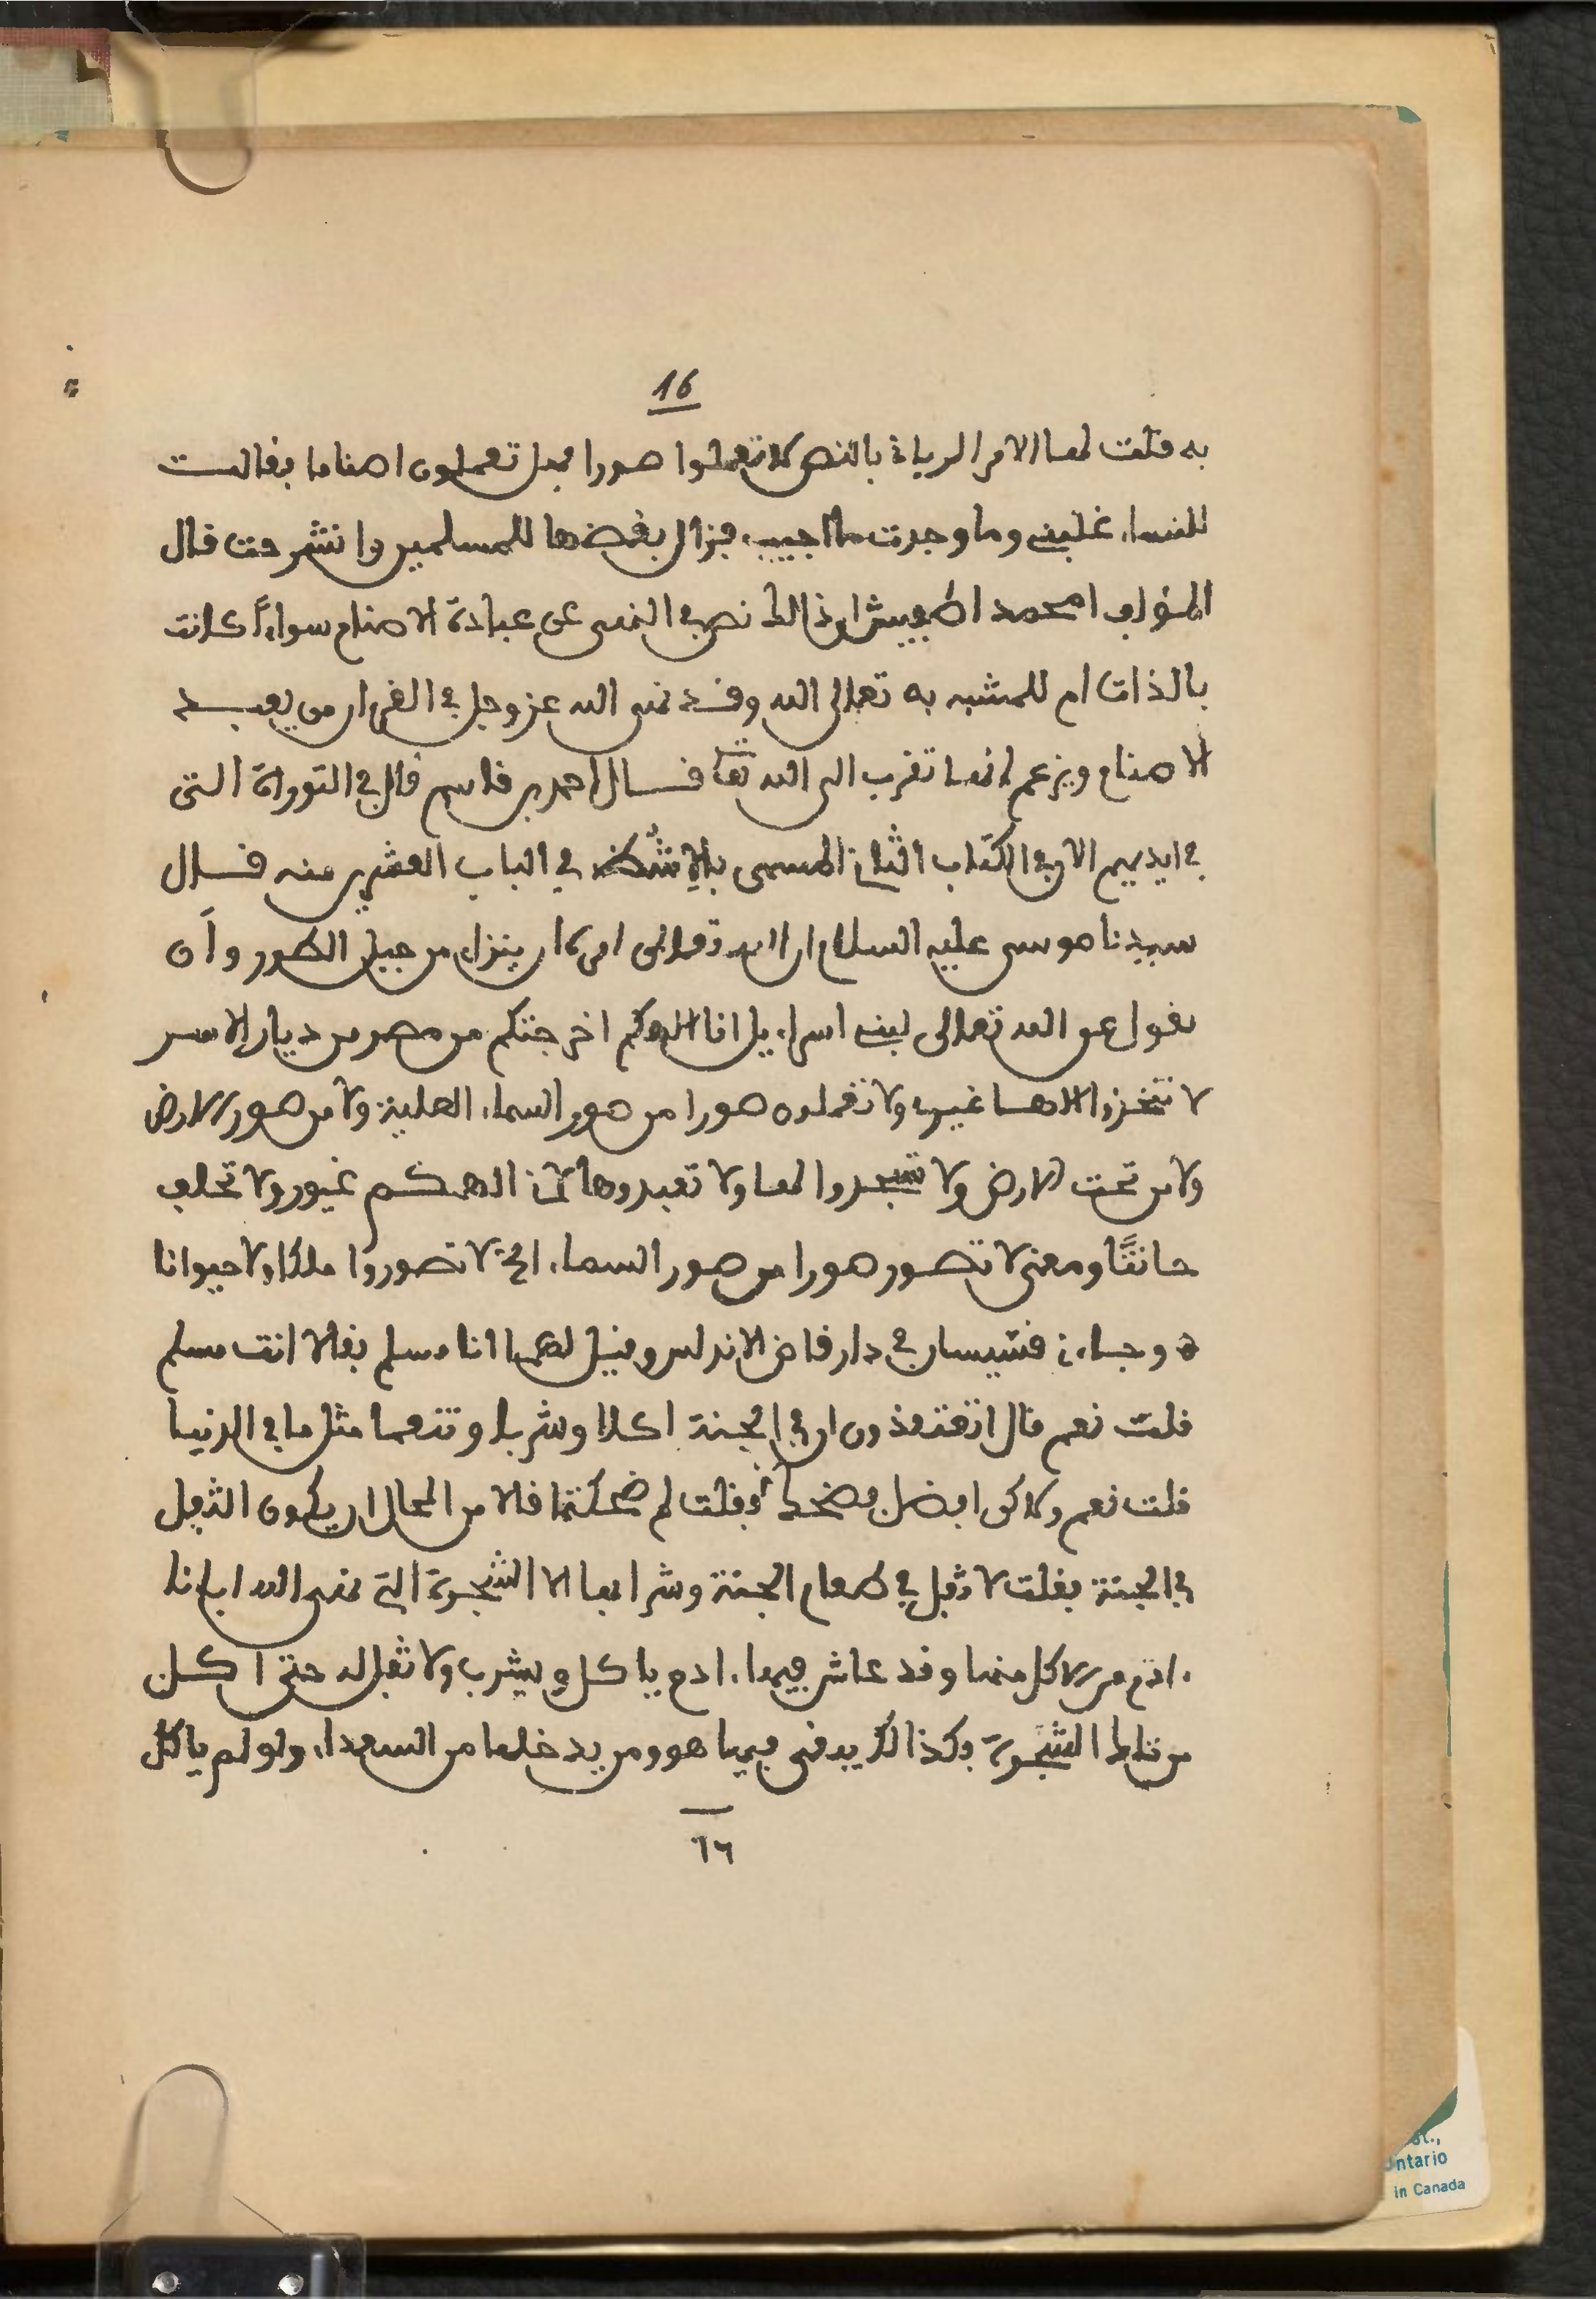 16
به فلت لها الامر الرباني بالنص لا تعملوا صورا فهل تعملون اصناما بفالت
للنساء غلبني وما وجدت ما اجيب، فزال بغضها للمسلمين وانشرحت فال
المؤلف امحمد اطفيش ان ذالك نص في النهي عن عبادة الاصنام سواءً كانت
بالذات ام للمشبه به تعالى الله وفد نهى الله عز وجل في الفرءان من يعبد
الاصنام ويزعم انها تفرب الى الله تعا فال احمد بن فاسم فال في التوراة التي
في ايديهم الان في الكتاب الثاني المسمى في الباب العشرين منه فال
سيدنا موسى عليه السلام ان الله تعالى امره ان ينزل من جبل الطور وأن
يفول عن الله تعالى لبني اسراءيل انا الاهكم اخرجتكم من مصر من ديار الاسر
لا تتخذوا الاها غيري ولا تعملون صورا من صور السماء العلية ولا من صور الارض
ولا من تحت الارض ولا تسجدوا لها ولا تعبدوها لاني الاهكم غيور ولا تحلف
حانثًا ومعنى لا تصور صورا من صور السماء، الخ لا تصوروا ملكا ولا حيوانا
ه وجاءني فسيسان في دار فاض الاندلس وفيل لهما انا مسلم بفالا انت مسلم
فلت نعم فال اتعتفدون ان في الجنة اكلا وشربا وتنعما مثل ما في الدنيا
فلت نعم ولاكن ابضل فضحكا وفلت لم ضحكتما فالا من المحال ان يكون الثفل
في الجنة بفلت لا ثفل في طعام الجنة وشرابها الا الشجرة التي نهى الله ابانا
ءادم من الاكل منها وفد عاش فيها ءادم ياكل ويشرب ولا ثفل له حتى اكل
من تلك الشجرة وكذالك يبفى فيها هو ومن يدخلها من السعداء ولو لم ياكل
١٦
st.,
Ontario
in Canada